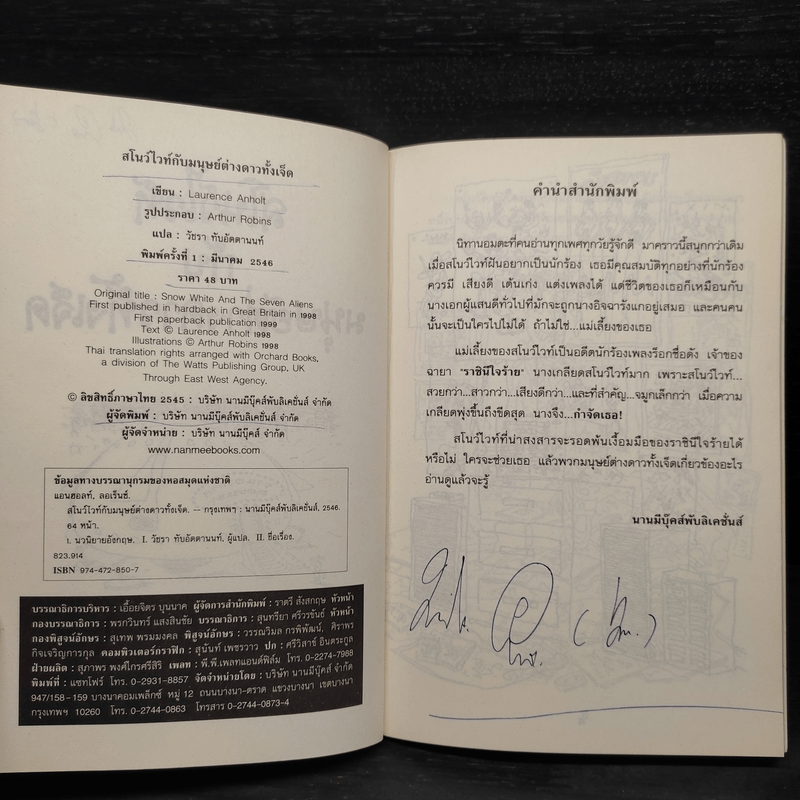 สโนว์ไวท์กับมนุษย์ต่างดาวทั้งเจ็ด
เขียน : Laurence Anholt
รูปประกอบ : Arthur Robins
แปล : วัชรา ทับอัตตานนท์
พิมพ์ครั้งที่ 1 : มีนาคม 2546
ราคา 48 บาท
Original title : Snow White And The Seven Aliens
First published in hardback in Great Britain in 1998
First paperback publication 1999
Text © Laurence Anholt 1998
Illustrations © Arthur Robins 1998
Thai translation rights arranged with Orchard Books,
a division of The Watts Publishing Group, UK
Through East West Agency.
© ลิขสิทธิ์ภาษาไทย 2545 : บริษัท นานมีบุ๊คส์พับลิเคชั่นส์ จำกัด
ผู้จัดพิมพ์ : บริษัท นานมีบุ๊คส์พับลิเคชั่นส์ จำกัด
ผู้จัดจำหน่าย : บริษัท นานมีบุ๊คส์ จำกัด
www.nanmeebooks.com
ข้อมูลทางบรรณานุกรมของหอสมุดแห่งชาติ
แอนฮอลท์, ลอเร็นซ์.
สโนว์ไวท์กับมนุษย์ต่างดาวทั้งเจ็ด. -- กรุงเทพฯ : นานมีบุ๊คส์พับลิเคชั่นส์, 2546.
64 หน้า.
1. นวนิยายอังกฤษ. I. วัชรา ทับอัตตานนท์, ผู้แปล. II. ชื่อเรื่อง.
823.914
ISBN 974-472-850-7
บรรณาธิการบริหาร : เอื้อยจิตร บุนนาค ผู้จัดการสำนักพิมพ์ : ราตรี สังสกฤษ หัวหน้า
กองบรรณาธิการ : พรกวินทร์ แสงสินชัย บรรณาธิการ : สุนทรียา ศรีวรขันธ์ หัวหน้า
กองพิสูจน์อักษร : สุเทพ พรมมงคล พิสูจน์อักษร : วรรณวิมล กรพิพัฒน์, ศิราพร
กิจเจริญการกุล คอมพิวเตอร์กราฟิก : สุนันท์ เพชรวาว ปก : ศรีวิสาข์ อินตระกูล
ฝ่ายผลิต : สุภาพร พงศ์ไกรศรีสิริ เพลท : พี.พี.เพลทแอนด์ฟิล์ม โทร. 0-2274-7988
พิมพ์ที่ : แซทโฟร์ โทร. 0-2931-8857 จัดจำหน่ายโดย : บริษัท นานมีบุ๊คส์ จำกัด
947/158-159 บางนาคอมเพล็กซ์ หมู่ 12 ถนนบางนา-ตราด แขวงบางนา เขตบางนา
กรุงเทพฯ 10260 โทร. 0-2744-0863 โทรสาร 0-2744-0873-4
คำนำสำนักพิมพ์
นิทานอมตะที่คนอ่านทุกเพศทุกวัยรู้จักดี มาคราวนี้สนุกกว่าเดิม
เมื่อสโนว์ไวท์ฝันอยากเป็นนักร้อง เธอมีคุณสมบัติทุกอย่างที่นักร้อง
ควรมี เสียงดี เต้นเก่ง แต่งเพลงได้ แต่ชีวิตของเธอก็เหมือนกับ
นางเอกผู้แสนดีทั่วไปที่มักจะถูกนางอิจฉารังแกอยู่เสมอ และคนคน
นั้นจะเป็นใครไปไม่ได้ ถ้าไม่ใช่...แม่เลี้ยงของเธอ
แม่เลี้ยงของสโนว์ไวท์เป็นอดีตนักร้องเพลงร็อกชื่อดัง เจ้าของ
ฉายา "ราชินีใจร้าย" นางเกลียดสโนว์ไวท์มาก เพราะสโนว์ไวท์...
สวยกว่า...สาวกว่า...เสียงดีกว่า...และที่สำคัญ...จมูกเล็กกว่า เมื่อความ
เกลียดพุ่งขึ้นถึงขีดสุด นางจึง...กำจัดเธอ!
สโนว์ไวท์ที่น่าสงสารจะรอดพ้นเงื้อมมือของราชินีใจร้ายได้
หรือไม่ ใครจะช่วยเธอ แล้วพวกมนุษย์ต่างดาวทั้งเจ็ดเกี่ยวข้องอะไร
อ่านดูแล้วจะรู้
นานมีบุ๊คส์พับลิเคชั่นส์